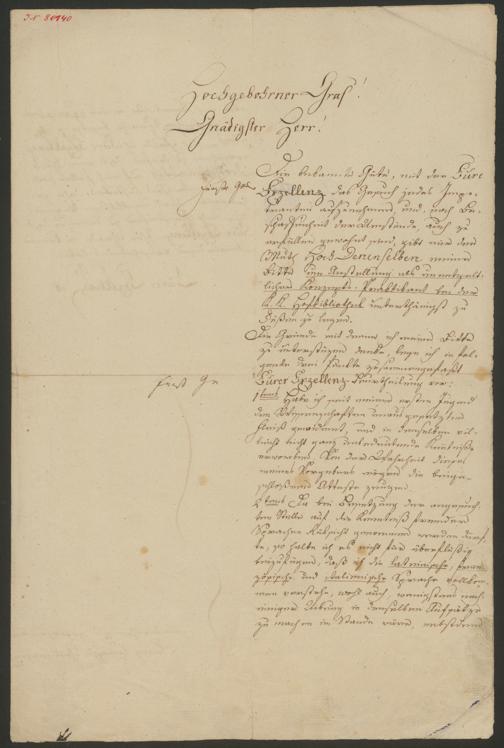 J.N. 80140
Hochgebohrner Graf!
Gnädigster Herr!
Die bekannte Güte, mit der Eure
Exzellenz das Gesuch jedes Impe-
tranten aufzunehmen, und, nach Be-
schaffenheit der Umstände, auch zu
erfüllen gewohnt sind, gibt mir den
Muth Hoch Denenselben meine
Bitte um Anstellung als unentgelt-
licher Konzepts-Praktikant bei der
K. K. Hofbibliothek unterthänigst zu
Füßen zu legen.
Die Gründe mit denen ich meine Bitte
zu unterstützen denke, lege ich in fol-
gende drei Punkte zusammengefaßt
Eurer Exzellenz Beurtheilung vor:
1tens Habe ich seit meiner ersten Jugend
den Wissenschaften unausgesetzten
Fleiß gewidmet, und in denselben viel-
leicht nicht ganz unbedeutende Kenntniße
erworben. Von der Wahrheit dieses
meines Vorgebens mögen die beige-
schloßenen Atteste zeugen.
2tens Da bei Besetzung der angesuch-
ten Stelle auf die Kenntniß fremder
Sprachen Rücksicht genommen werden dürf-
te, so halte ich es nicht für überflüßig
beizufügen, daß ich die lateinische, fran-
zösische und italienische Sprache vollkom-
men verstehe, wohl auch, wenigstens nach
einiger Uebung in denselben Aufsätze
zu machen im Stande wäre, nebstdem